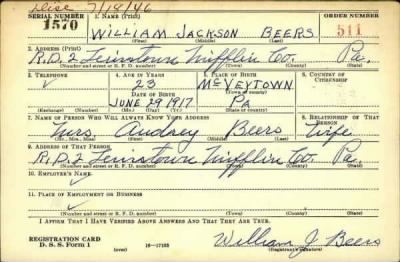 Disc 7/18/46
SERIAL NUMBER 1. NAME (Print) ORDER NUMBER
1570 WILLIAM JACKSON BEERS 511
(First) (Middle) (Last)
2. ADDRESS (Print)
R.D. 2 Lewistown Mifflin Co. Pa.
(Number and street or R. F. D. number) (Town) (County) (State)
3. TELEPHONE 4. AGE IN YEARS 5. PLACE OF BIRTH 6. COUNTRY OF CITIZENSHIP
23 McVEYTOWN
DATE OF BIRTH (Town or county)
JUNE 29 1917 Pa
(Exchange) (Number) (Mo.) (Day) (Yr.) (State or country)
7. NAME OF PERSON WHO WILL ALWAYS KNOW YOUR ADDRESS 8. RELATIONSHIP OF THAT PERSON
Mrs. Audrey Beers Wife
(Mr., Mrs., Miss) (First) (Middle) (Last)
9. ADDRESS OF THAT PERSON
R.D. 2 Lewistown Mifflin Co. Pa.
(Number and street or R. F. D. number) (Town) (County) (State)
10. EMPLOYER'S NAME
11. PLACE OF EMPLOYMENT OR BUSINESS
(Number and street or R. F. D. number) (Town) (County) (State)
I AFFIRM THAT I HAVE VERIFIED ABOVE ANSWERS AND THAT THEY ARE TRUE.
REGISTRATION CARD
D. S. S. Form 1 (over) 16—17105 William J Beers
(Registrant's signature)